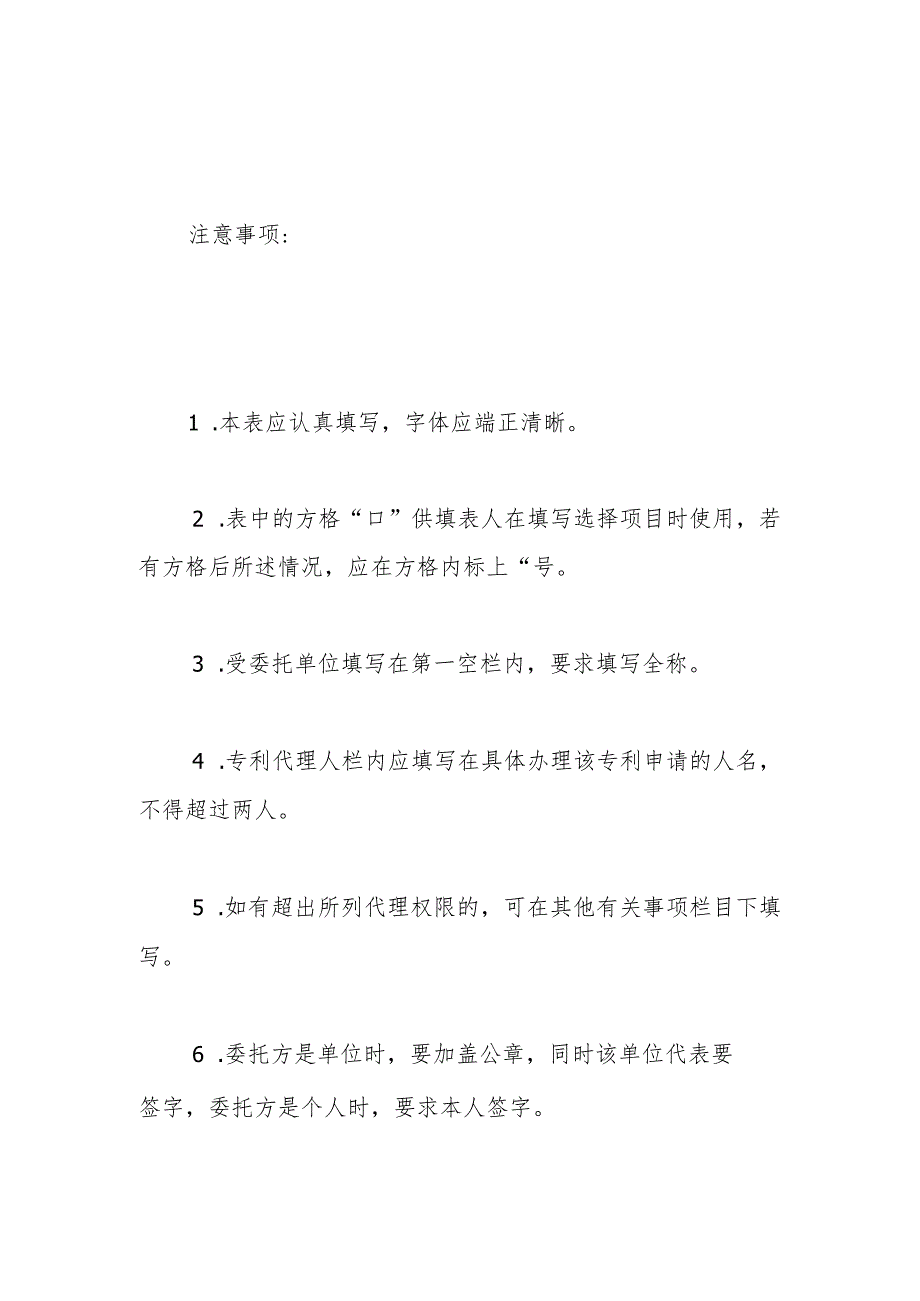 注意事项:
1 .本表应认真填写，字体应端正清晰。
2 .表中的方格“口”供填表人在填写选择项目时使用，若
有方格后所述情况，应在方格内标上“号。
3 .受委托单位填写在第一空栏内，要求填写全称。
4 .专利代理人栏内应填写在具体办理该专利申请的人名，
不得超过两人。
5 .如有超出所列代理权限的，可在其他有关事项栏目下填
写。
6 .委托方是单位时，要加盖公章，同时该单位代表要
签字，委托方是个人时，要求本人签字。